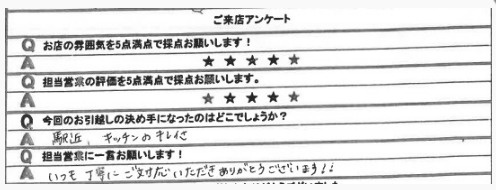 ご来店アンケート
Q お店の雰囲気を5点満点で採点お願いします！
A ★ ★ ★ ★ ★
Q 担当営業の評価を5点満点で採点お願いします。
A ★ ★ ★ ★ ★
Q 今回のお引越しの決め手になったのはどこでしょうか？
A 駅近、キッチンのキレイさ
Q 担当営業に一言お願いします！
A いつも丁寧にご対応いただきありがとうございます！！